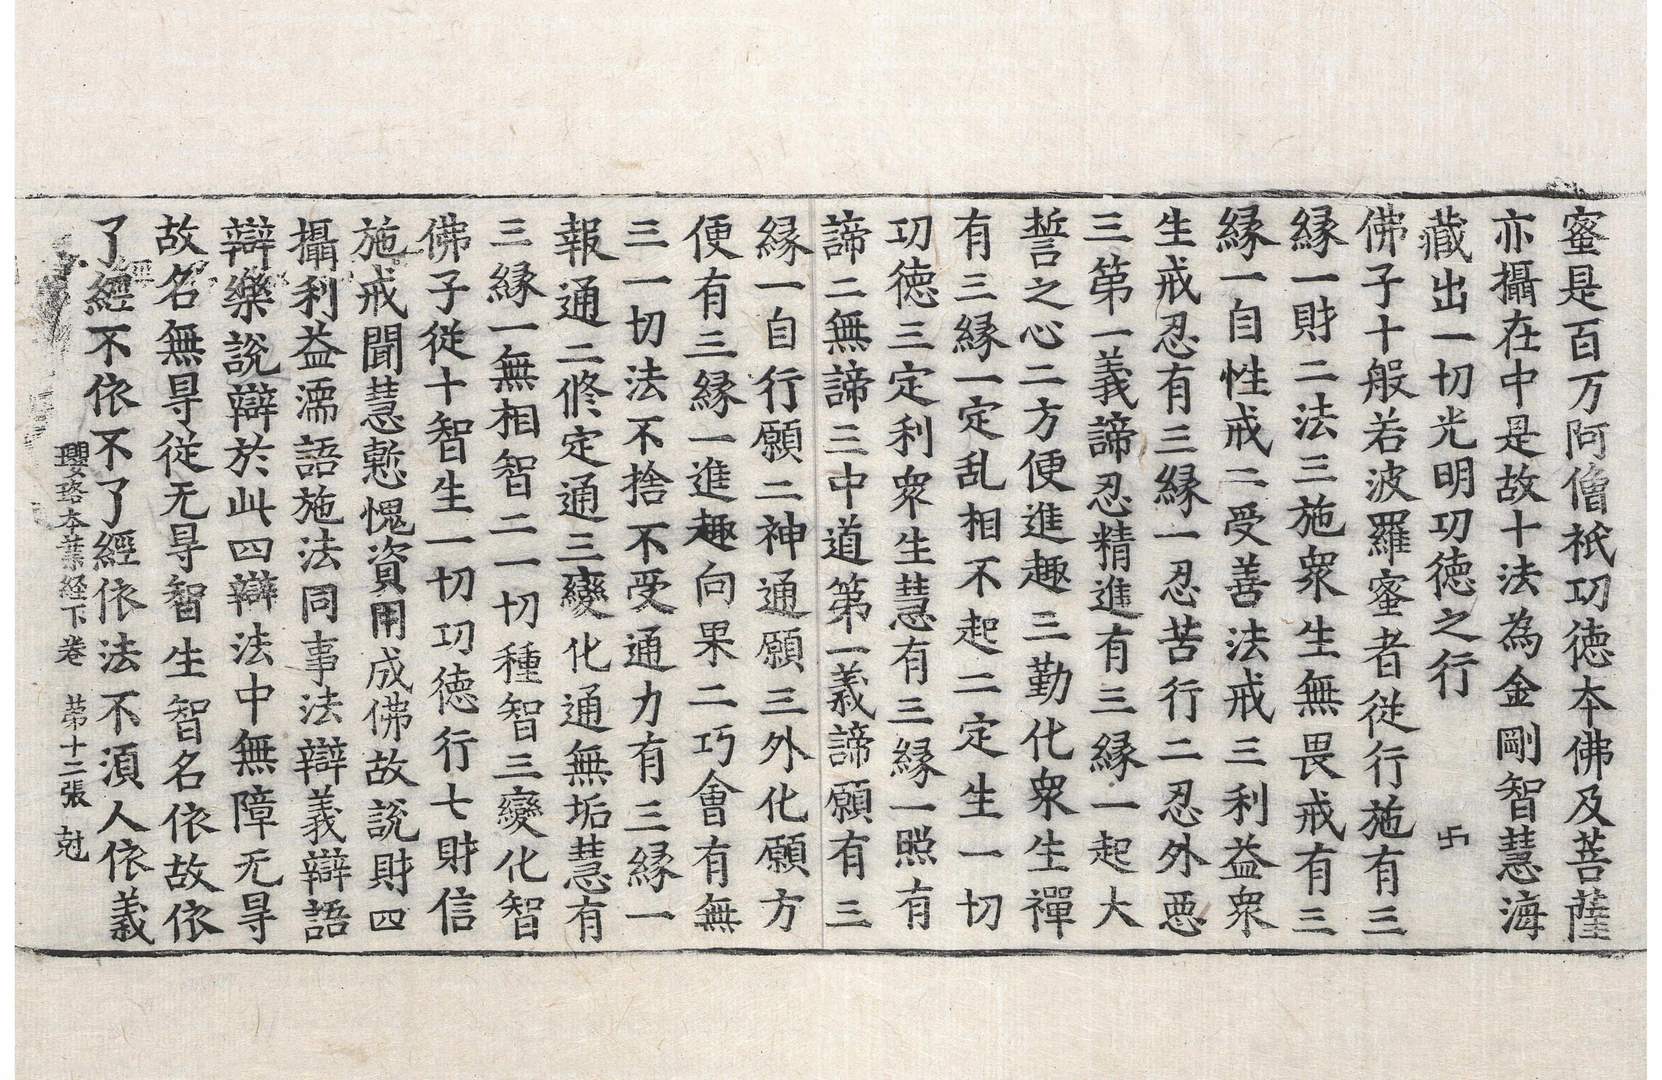 蜜是百万阿僧祇功德本佛及菩薩
亦攝在中是故十法為金剛智慧海
藏出一切光明功德之行 卐
佛子十般若波羅蜜者從行施有三
縁一財二法三施衆生無畏戒有三
縁一自性戒二受善法戒三利益衆
生戒忍有三縁一忍苦行二忍外惡
三第一義諦忍精進有三縁一起大
誓之心二方便進趣三勤化衆生禪
有三縁一定乱相不起二定生一切
功德三定利衆生慧有三縁一照有
諦二無諦三中道第一義諦願有三
縁一自行願二神通願三外化願方
便有三縁一進趣向果二巧會有無
三一切法不捨不受通力有三縁一
報通二修定通三變化通無垢慧有
三縁一無相智二一切種智三變化智
佛子從十智生一切功德行七財信
施戒聞慧慙愧資用成佛故說財四
攝利益濡語施法同事法辯義辯語
辯樂說辯於此四辯法中無障无㝵
故名無㝵從无㝵智生智名依故依
了經不依不了經依法不湏人依義
瓔珞本業経下卷 苐十二張 尅